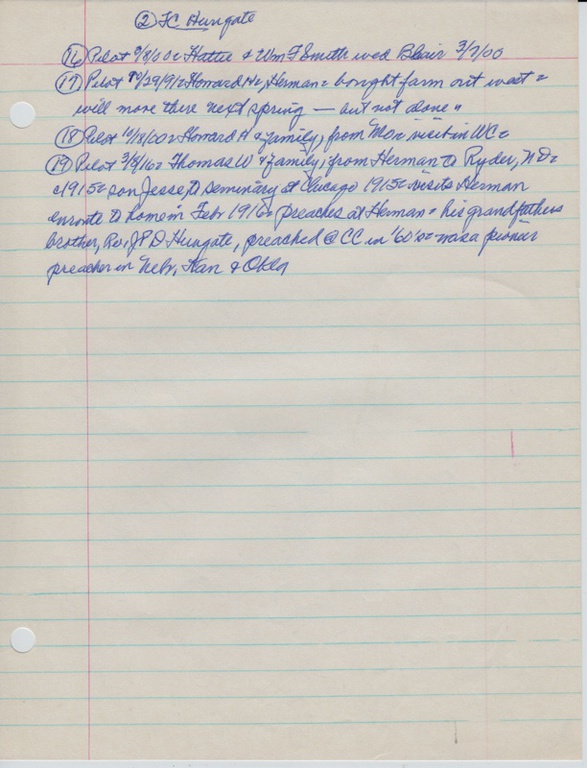 ② TC Hungate
⑯ Pilot 3/8/00 = Hattie & Wm F Smith wed Blair 3/7/00
⑰ Pilot /29/91 = Howard H, Herman = bought farm out west =
will move there next spring — but not done "
⑱ Pilot 10/18/00 = Howard H & family, from Mo = visit in WC =
⑲ Pilot 3/8/16 = Thomas W & family, from Herman to Ryder, ND =
c1915 = son Jesse, to seminary at Chicago 1915 = visits Herman
enroute to home in Feb 1916 = preaches at Herman = his grandfathers
brother, Rev. J P D Hungate, preached @ CC in '60's = was a pioneer
preacher in Nebr, Kan & Okla